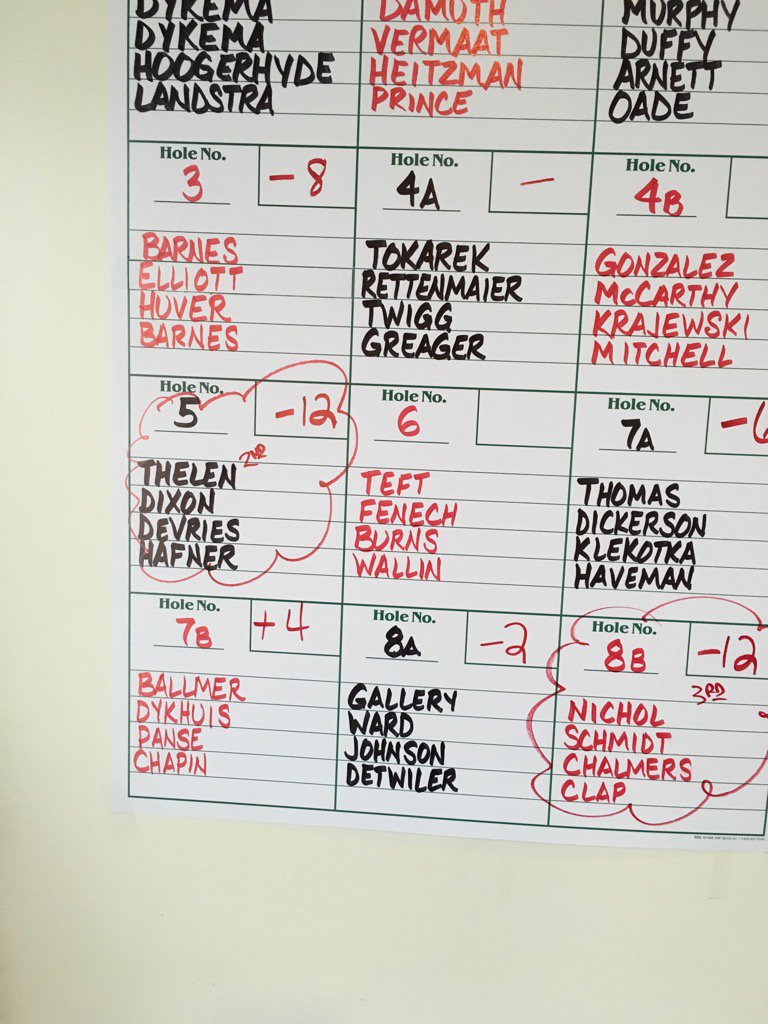 DYKEMA
DYKEMA
HOOGERHYDE
LANDSTRA
DAMUTH
VERMAAT
HEITZMAN
PRINCE
MURPHY
DUFFY
ARNETT
OADE
Hole No.
3
-8
BARNES
ELLIOTT
HUVER
BARNES
Hole No.
4A
-
TOKAREK
RETTENMAIER
TWIGG
GREAGER
Hole No.
4B
GONZALEZ
McCARTHY
KRAJEWSKI
MITCHELL
Hole No.
5
-12
2ND
THELEN
DIXON
DEVRIES
HAFNER
Hole No.
6
TEFT
FENECH
BURNS
WALLIN
Hole No.
7A
-6
THOMAS
DICKERSON
KLEKOTKA
HAVEMAN
Hole No.
7B
+4
BALLMER
DYKHUIS
PANSE
CHAPIN
Hole No.
8A
-2
GALLERY
WARD
JOHNSON
DETWILER
Hole No.
8B
-12
3RD
NICHOL
SCHMIDT
CHALMERS
CLAP